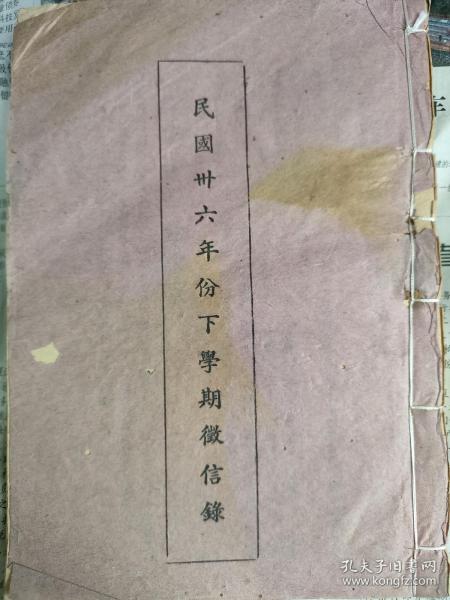 民國卅六年份下學期徵信錄
孔夫子旧书网